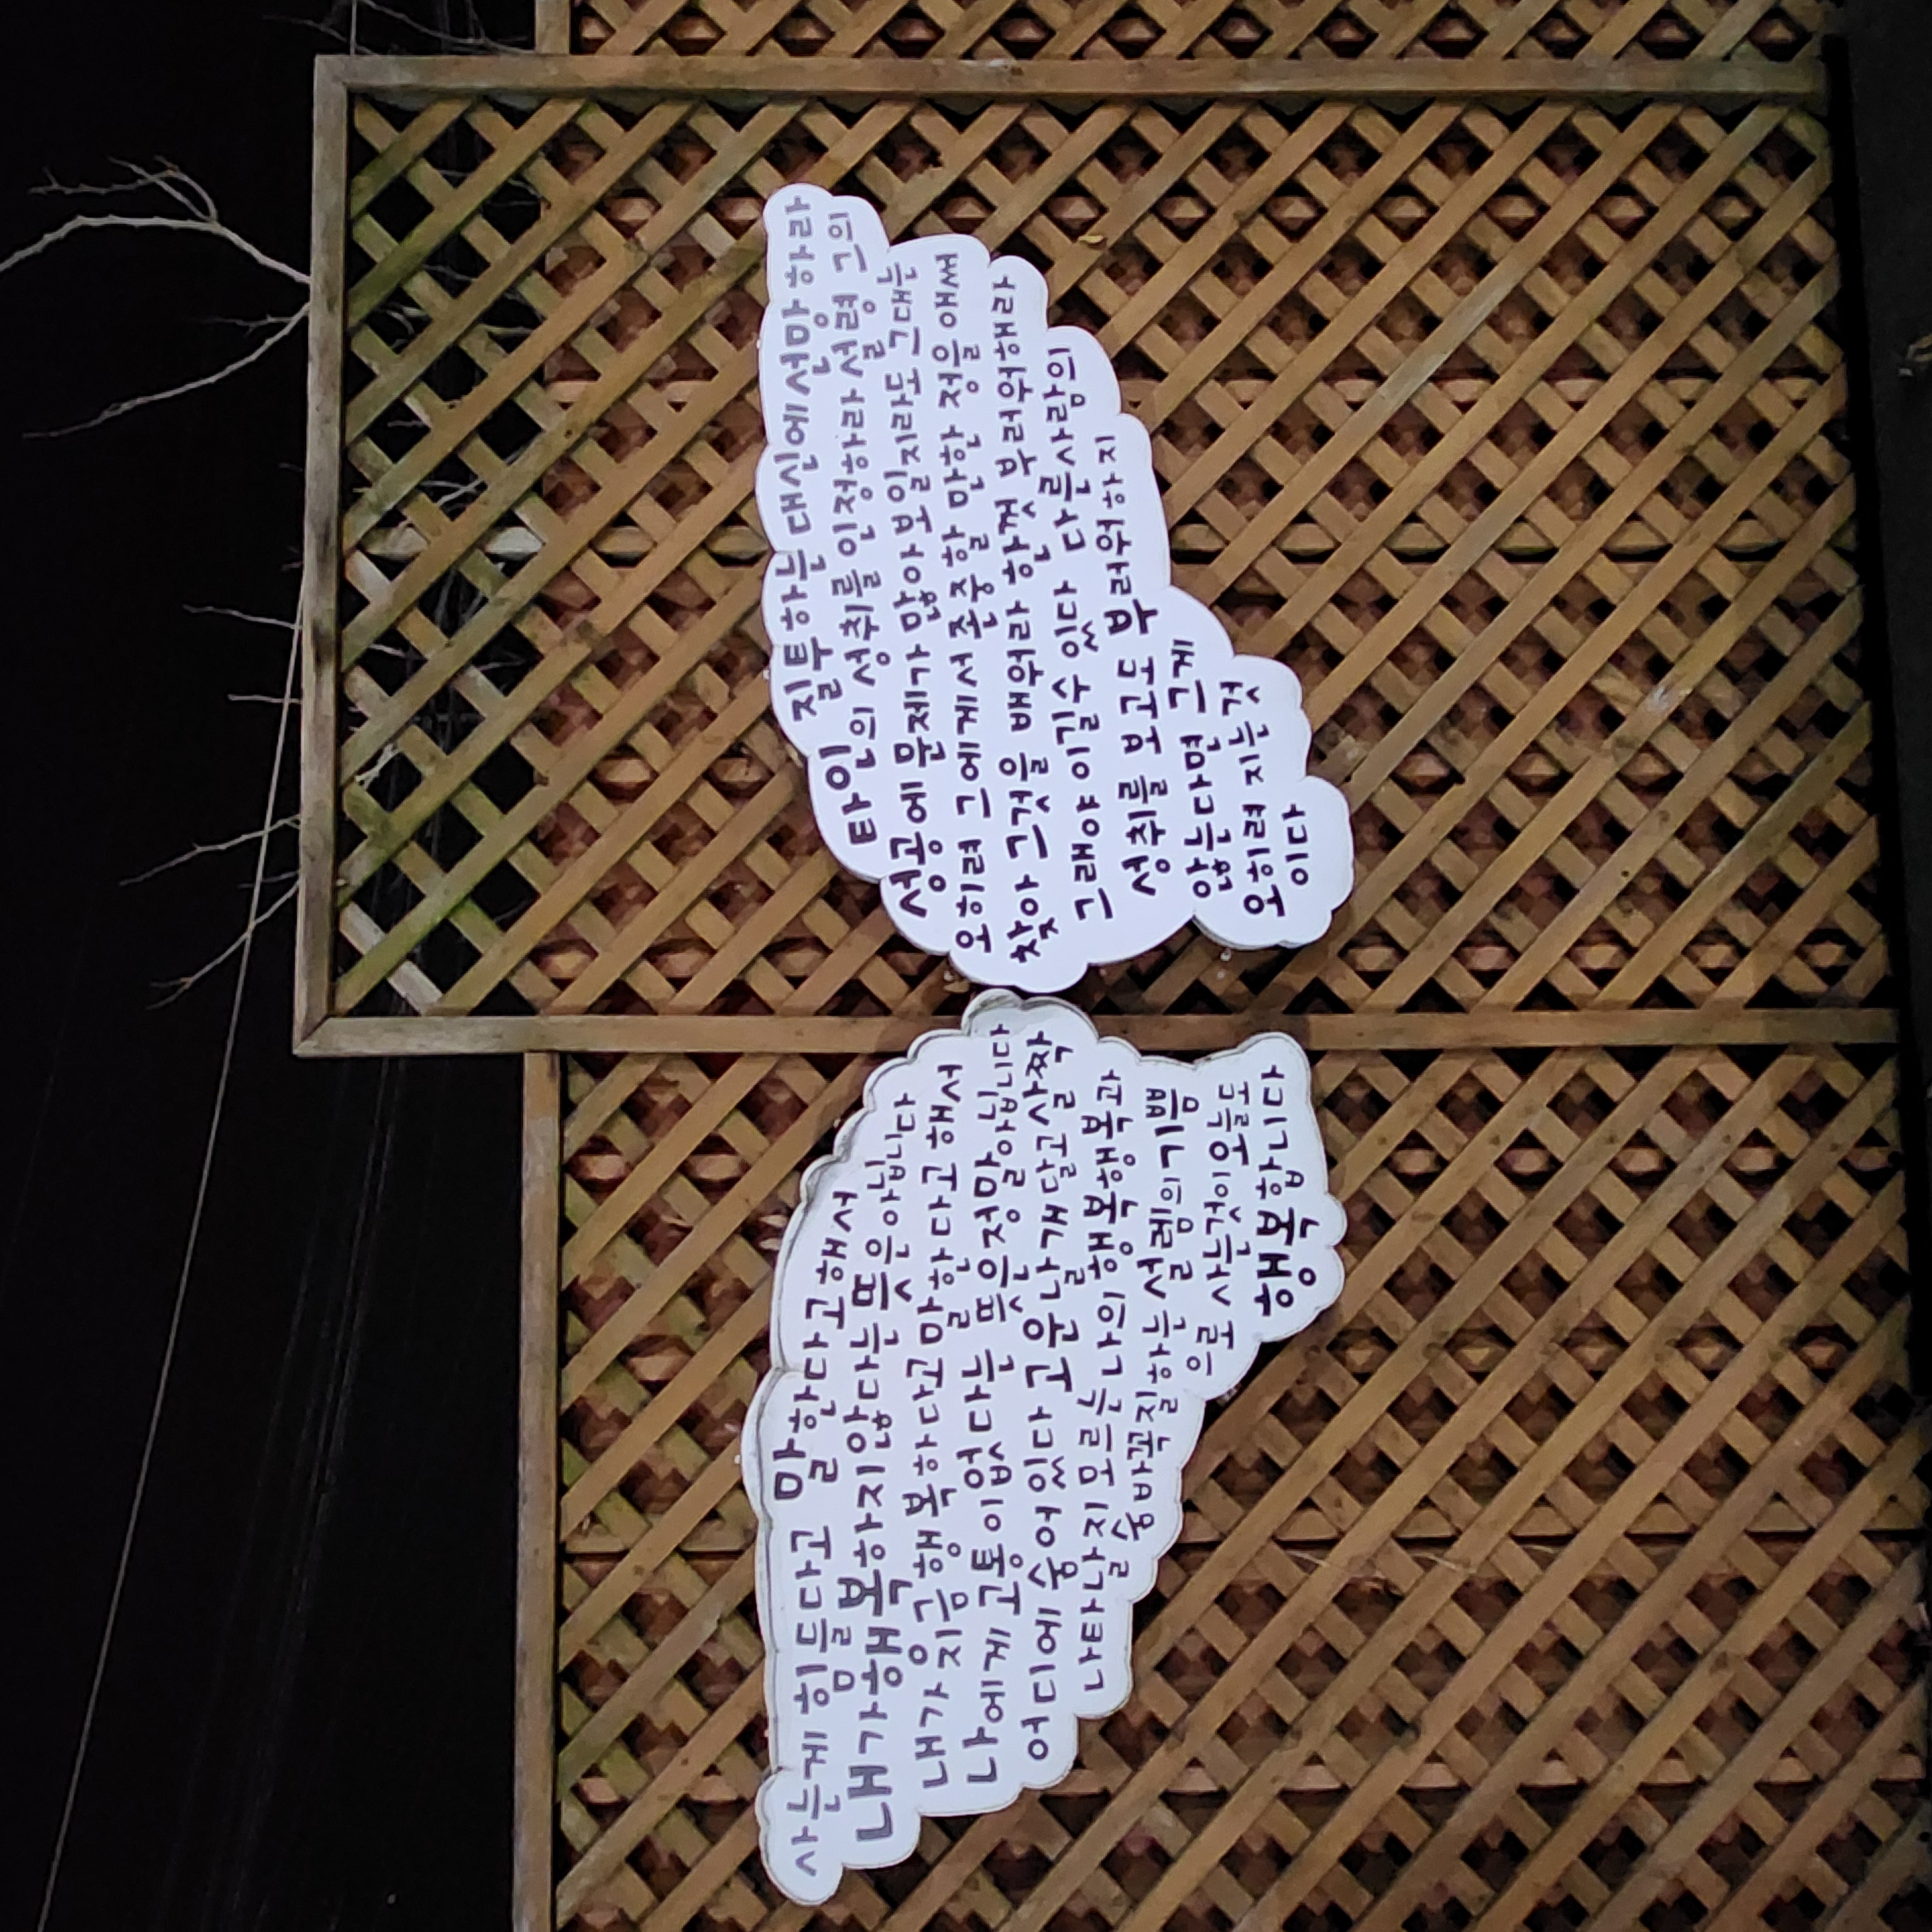 사는게 힘들다고 말한다고해서
내가행복하지않다는뜻은아닙니다
내가지금행복하다고말한다고해서
나에게 고통이 없다는 뜻은정말아닙니다
어디에 숨어있다 고운날개달고 살짝
나타날지 모르는 나의 행복행복과
숨바꼭질하는 설렘의 기쁨
으로 사는것이 오늘도
행복합니다
질투하는 대신에 선망 하라
타인의 성취를 인정하라 설령 그의
성공에 문제가 많아 보일지라도 그대는
오히려 그에게서 존중할 만한 점을 애써
찾아 그것을 배워라 한껏 부러워해라
그래야 이길수 있다 다른사람의
성취를 보고도 부러워하지
않는다면 그게
것
이다